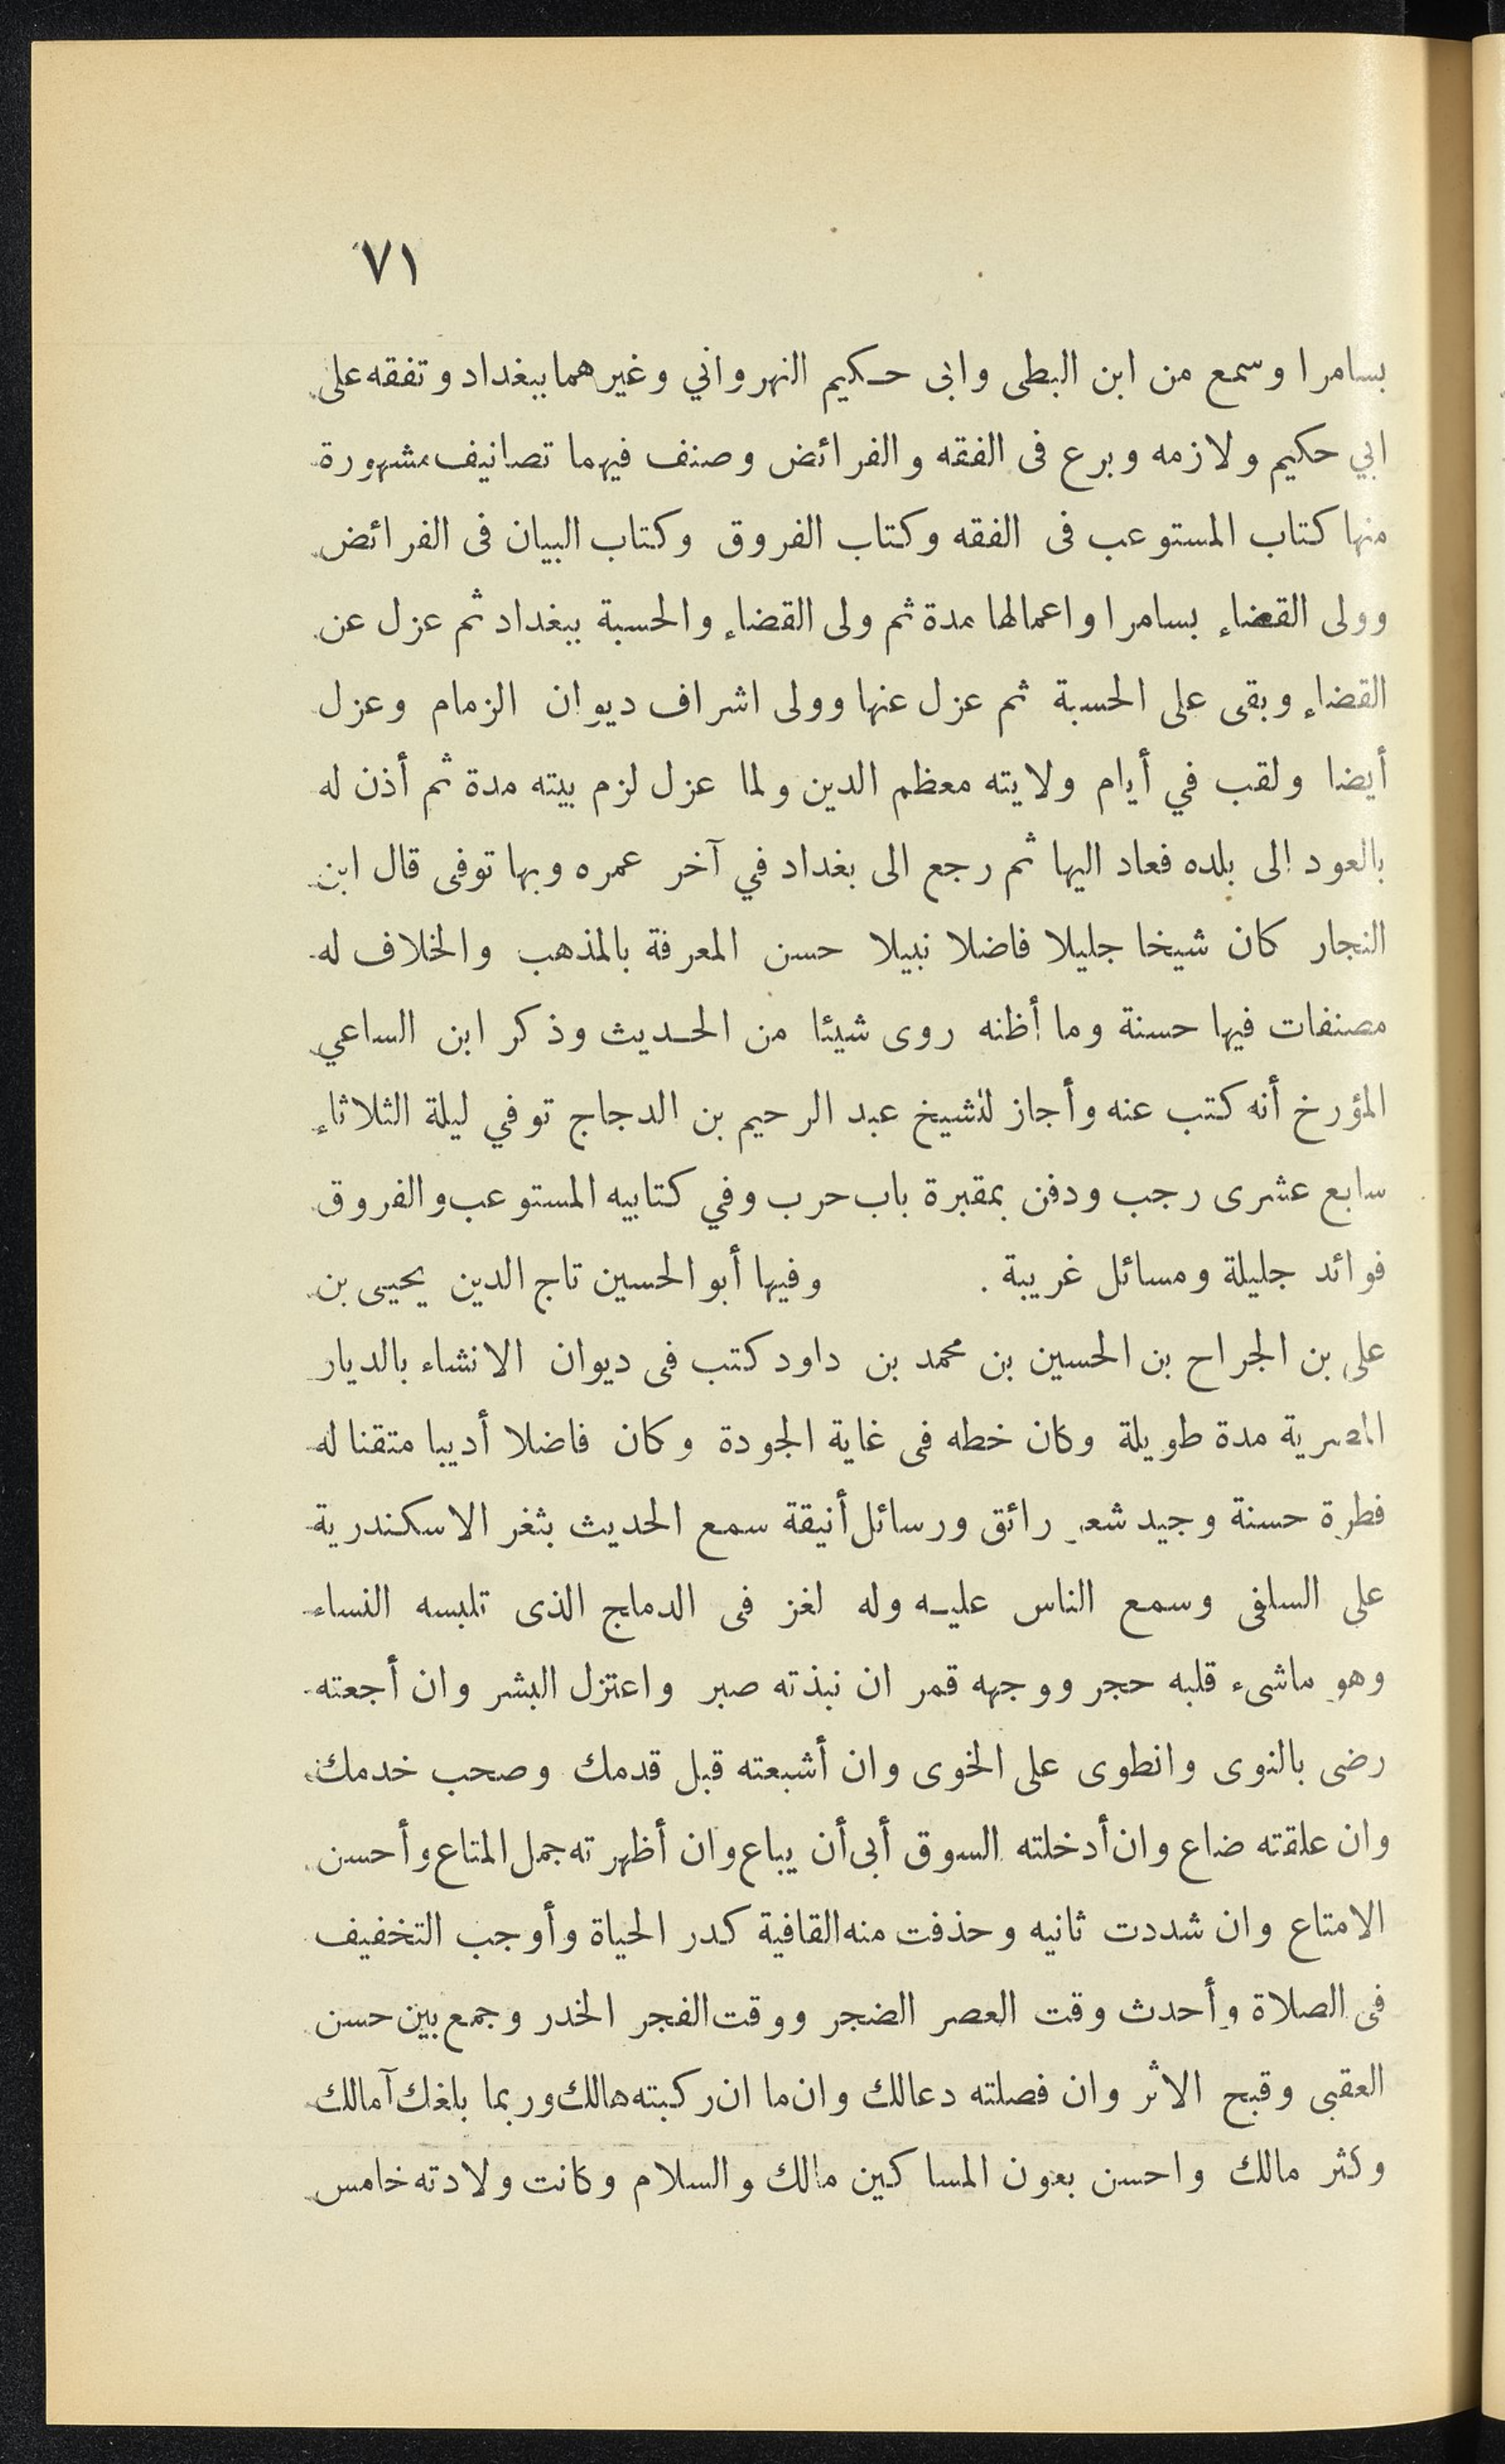 ٧١
بسامرا وسمع من ابن البطى وابى حكيم النهرواني وغيرهما ببغداد وتفقه على
ابي حكيم ولازمه وبرع فى الفقه والفرائض وصنف فيهما تصانيف مشهورة
منها كتاب المستوعب فى الفقه وكتاب الفروق وكتاب البيان فى الفرائض
وولى القضاء بسامرا واعمالها مدة ثم ولى القضاء والحسبة ببغداد ثم عزل عن
القضاء وبقى على الحسبة ثم عزل عنها وولى اشراف ديوان الزمام وعزل
أيضا ولقب في أيام ولايته معظم الدين ولما عزل لزم بيته مدة ثم أذن له
بالعود الى بلده فعاد اليها ثم رجع الى بغداد في آخر عمره وبها توفى قال ابن
النجار كان شيخا جليلا فاضلا نبيلا حسن المعرفة بالمذهب والخلاف له
مصنفات فيها حسنة وما أظنه روى شيئا من الحديث وذكر ابن الساعي
المؤرخ أنه كتب عنه وأجاز للشيخ عبد الرحيم بن الدجاج توفي ليلة الثلاثاء
سابع عشرى رجب ودفن بمقبرة باب حرب وفي كتابيه المستوعب والفروق
فوائد جليلة ومسائل غريبة . وفيها أبو الحسين تاج الدين يحيى بن
على بن الجراح بن الحسين بن محمد بن داود كتب فى ديوان الانشاء بالديار
المصرية مدة طويلة وكان خطه فى غاية الجودة وكان فاضلا أديبا متقنا له
فطرة حسنة وجيد شعر رائق ورسائل أنيقة سمع الحديث بثغر الاسكندرية
على السلفى وسمع الناس عليه وله لغز فى الدملج الذى تلبسه النساء
وهو ماشىء قلبه حجر ووجهه قمر ان نبذته صبر واعتزل البشر وان أجعته
رضى بالنوى وانطوى على الخوى وان أشبعته قبل قدمك وصحب خدمك
وان علقته ضاع وان أدخلته السوق أبى أن يباع وان أظهرته جمل المتاع وأحسن
الامتاع وان شددت ثانيه وحذفت منه القافية كدر الحياة وأوجب التخفيف
فى الصلاة وأحدث وقت العصر الضجر ووقت الفجر الخدر وجمع بين حسن
العقبى وقبح الاثر وان فصلته دعالك وان ما ان ركبته هالك وربما بلغك آمالك
وكثر مالك واحسن بعون المساكين مالك والسلام وكانت ولادته خامس